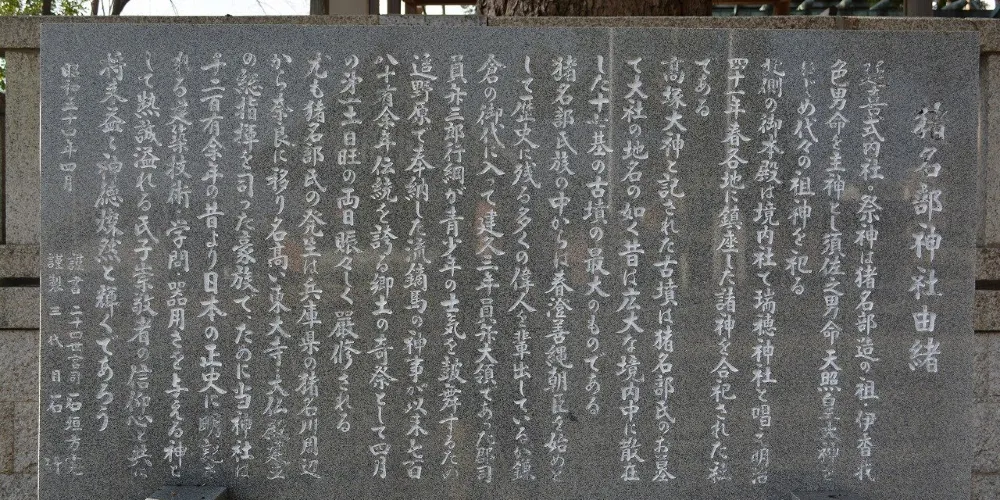 猪名部神社由緒
延喜式内社。祭神は猪名部造の祖 伊香我
色男命を主神とし須佐之男命 天照皇大神を
はじめ代々の祖神を祀る
北側の御本殿は境内社で瑞穂神社と唱え明治
四十一年春各地に鎮座した諸神を合祀された社
である
高塚大神と記された古墳は猪名部氏のお墓
で大社の地名の如く昔は広大な境内中に散在
した十八基の古墳の最大のものである
猪名部氏族の中からは春澄善縄朝臣を始めと
して歴史に残る多くの偉人を輩出しているが鎌
倉の御代に入って建久三年員弁大領であった郡司
員弁三郎行綱が青少年の士気を鼓舞するため
追野原で奉納した流鏑馬の神事が以来七百
八十有余年伝統を誇る郷土の奇祭として四月
の第一土日旺の両日賑々しく厳修される
尤も猪名部氏の発生は兵庫県の猪名川周辺
から奈良に移り名高い東大寺大仏殿建立
の総指揮を司った豪族で、たのに当神社は
千二百有余年の昔より日本の正史に明記さ
れる建築技術・学問 器用さを与える神と
して熱誠溢れる氏子崇敬者の信仰心と共に
将来益々神徳燦然と輝くであろう
昭和五十四年四月
謹書 二十四世宮司 石垣
謹製 三代目石